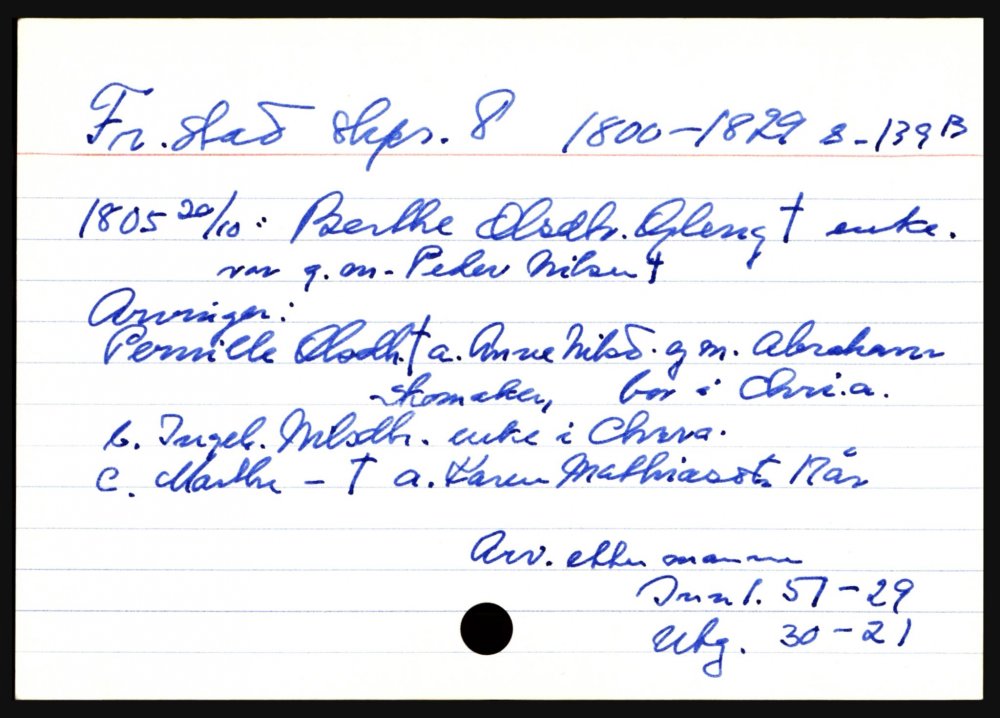 Fr.stad skps. 8 1800-1829 s-139B
1805 20/10: Berthe Olsdtr. Opleng † enke.
var g.m. Peder Nilsen †
Arvinger:
Pernille Olsdtr.† a. Anne Nilsd. g m. Abraham
skomaker, bor i Chri.a.
b. Ingeb. Nilsdtr. enke i Chra.
C. Marthe - † a. Karen Mathiasdtr 17 år
Arv. etter mannen
Innt. 57-29
Utg. 30-21